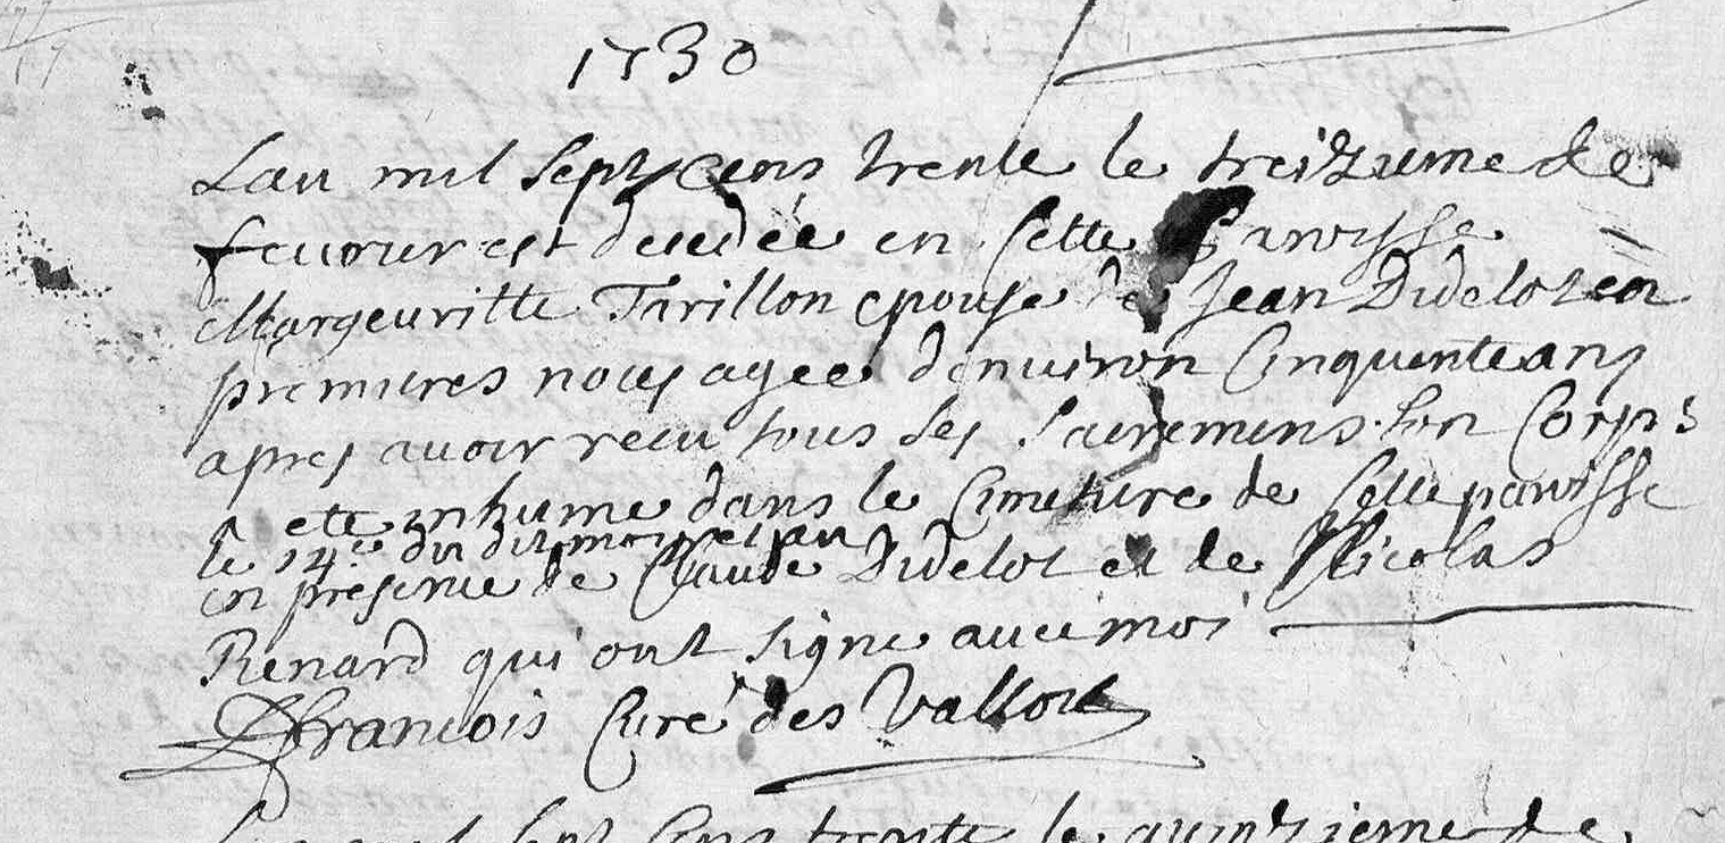 1730
Lan mil Sept cens trente le treizieme de
feuvrier est decedée en Cette Paroisse
Margeuritte Tirillon epouse de Jean Didelot en
premieres noces agee denuiron Cinquante ans
apres auoir receu tous ses Sacremens. son Corps
a ete inhume dans le Cimetiere de Cette paroisse
le 14.e du dit mois et an
en presence de Claude Didelot et de Nicolas
Renard qui ont signe auec moi
francois Curé des Vallois
Lan mil Sept Cens trente le quinzieme de